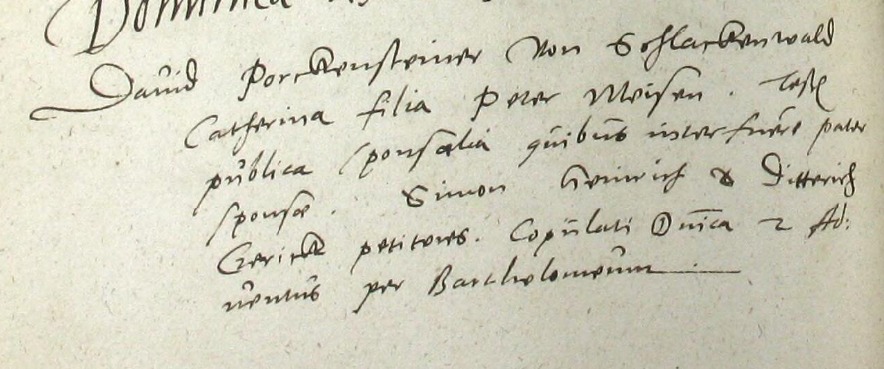 Dominica
David Porckensteiner Von Schlackenwald
Catherina filia Peter Meisen. Test
publica sponsalia quibus interfuere pater
sponsæ. Simon Heinrich & Ditterich
Gerickt petitores. Copulati Dnica 2 Ad:
uentus per Bartholomeum